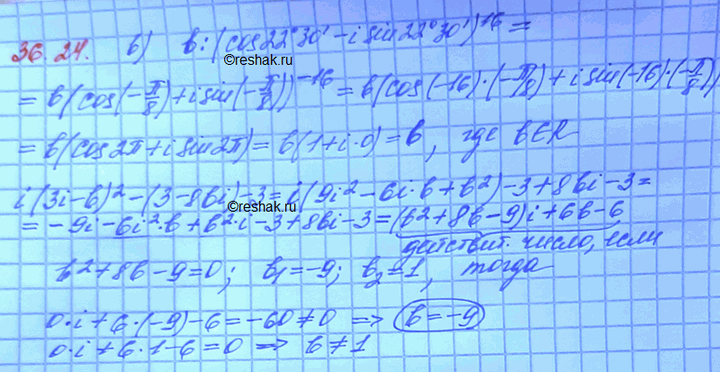 36.24. в) b:(cos22°30' - i sin22°30')^16 =
©reshak.ru
= b(cos(-π/8) + i sin(-π/8))^-16 = b(cos(-16)·(-π/8) + i sin(-16)·(-π/8))
= b(cos2π + i sin2π) = b(1 + i·0) = b, где b∈R
i(3i-b)² - (3-8bi) - 3 = i(9i² - 6i·b + b²) - 3 + 8bi - 3 =
©reshak.ru
= -9i - 6i²·b + b²·i - 3 + 8bi - 3 = (b² + 8b - 9)i + 6b - 6
действит. число, если
b² + 8b - 9 = 0; b₁ = -9; b₂ = 1, тогда
0·i + 6·(-9) - 6 = -60 ≠ 0 => b = -9
0·i + 6·1 - 6 = 0 => b ≠ 1